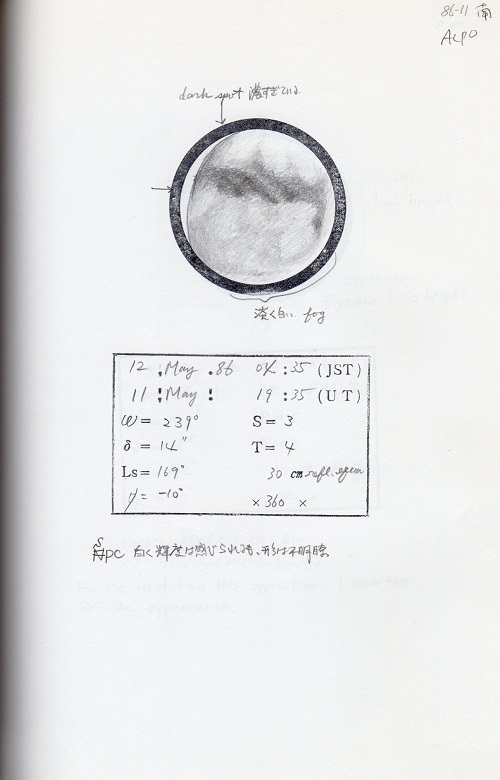 86-11 南
ALPO
dark spot 濃すぎている
淡く白い fog
12 , May . 86 04 : 35 (JST)
11 , May : 19 : 35 (UT)
ω = 239° S = 3
δ = 14" T = 4
Ls = 169° 30 cm refl.
= -10° × 360 ×
白く輝度は感じられるも、形は不明瞭